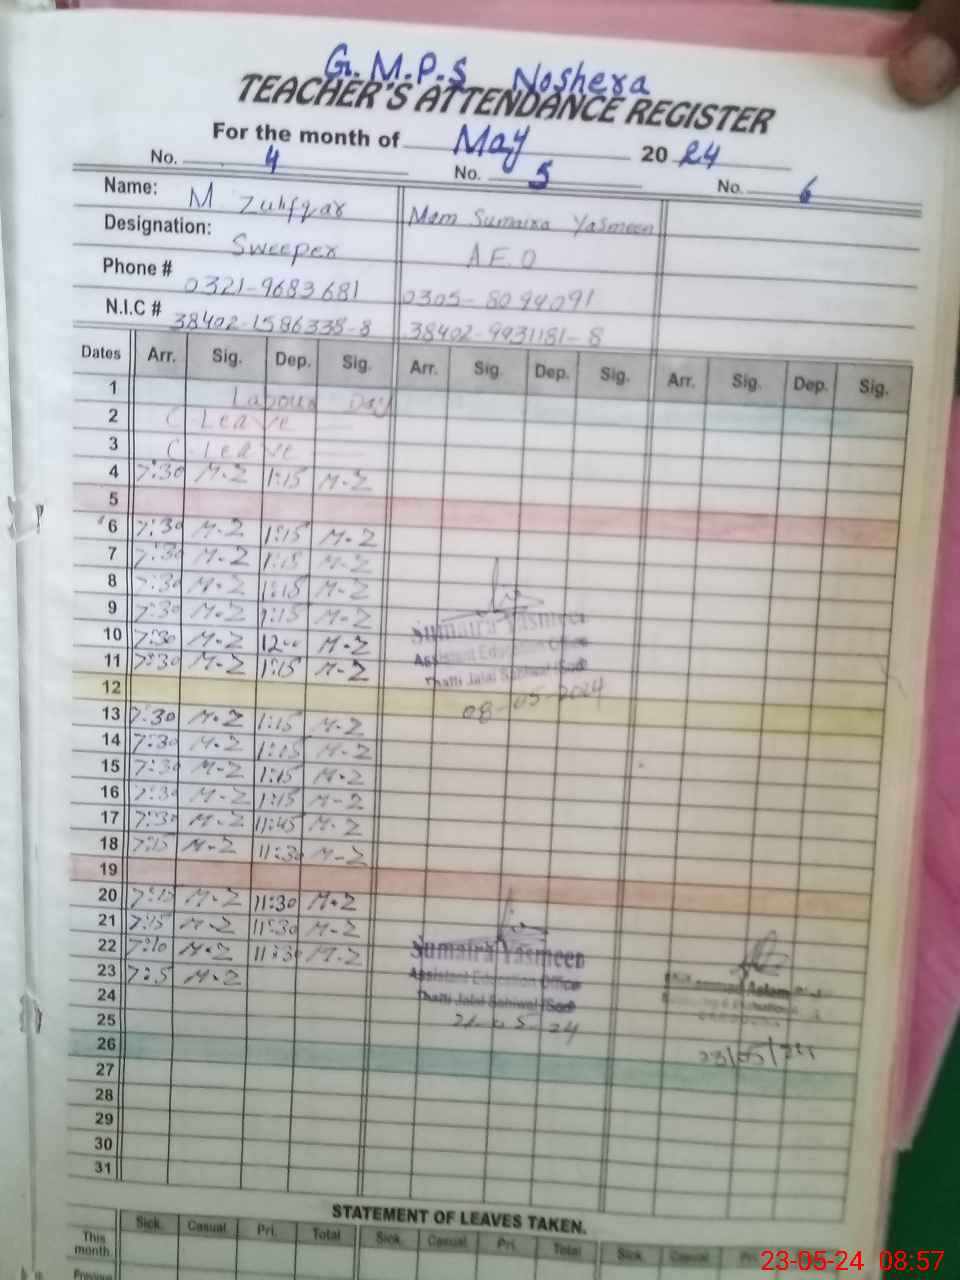 G.M.P.S Noshera
TEACHER'S ATTENDANCE REGISTER
For the month of May 2024
No. 4 No. 5 No. 6
Name: M Zulifqar Mam Sumaira Yasmeen
Designation: Sweeper A.E.O
Phone # 0321-9683681 0305-8094091
N.I.C # 38402-1586338-8 38402-9931181-8
Dates Arr. Sig. Dep. Sig. Arr. Sig. Dep. Sig. Arr. Sig. Dep. Sig.
1 Labour Day
2 C Leave
3 C Leave
4 7:30 M-Z 1:15 M-Z
5
6 7:30 M-Z 1:15 M-Z
7 7:30 M-Z 1:15 M-Z
8 7:30 M-Z 1:15 M-Z
9 7:30 M-Z 1:15 M-Z
Sumaira Yasmeen
10 7:30 M-Z 12-- M-Z
Assistant Education Office
11 7:30 M-Z 1:15 M-Z
Thatti Jalal Sahiwal (Sod
12
08-05-2024
13 7:30 M-Z 1:15 M-Z
14 7:30 M-Z 1:15 M-Z
15 7:30 M-Z 1:15 M-Z
16 7:30 M-Z 1:15 M-Z
17 7:30 M-Z 11:45 M-Z
18 7:15 M-Z 11:30 M-Z
19
20 7:15 M-Z 11:30 M-Z
21 7:15 M-Z 11:30 M-Z
22 7:10 M-Z 11:30 M-Z
Sumaira Yasmeen
23 7:5 M-Z
Assistant Education Office
Aslam
24
Thatti Jalal Sahiwal (Sod
25
21-05-24
26
23/05/
27
28
29
30
31
STATEMENT OF LEAVES TAKEN.
Sick. Casual. Pri. Total Sick. Casual. Pri. Total Sick. Casual.
This month.
Previous
23-05-24 08:57